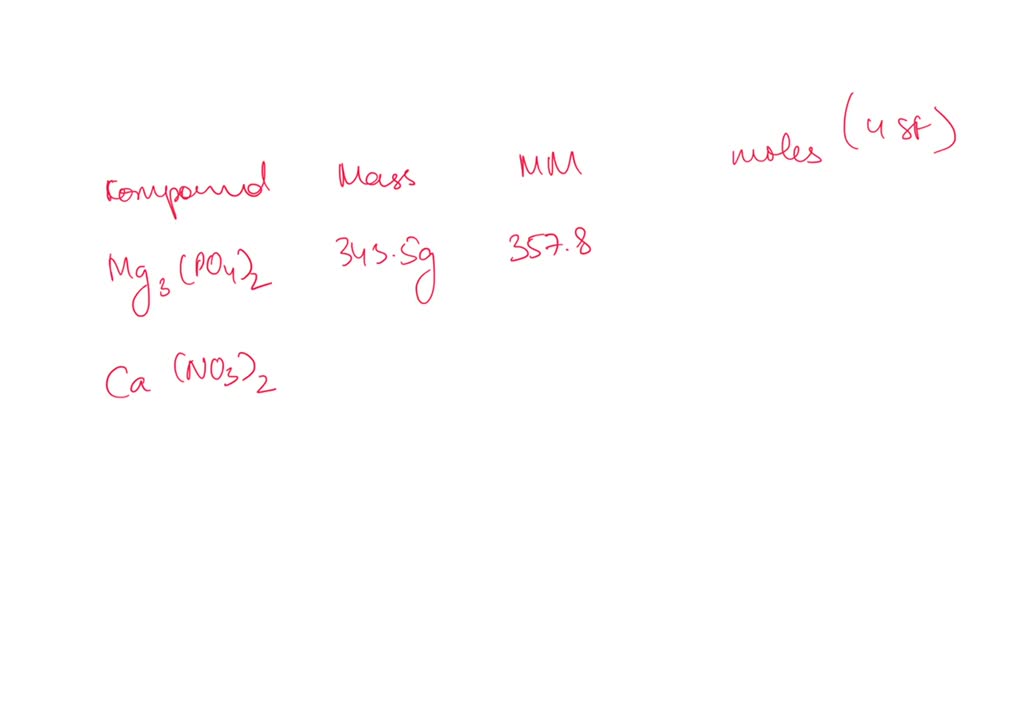 Compound Mass MM moles (4 SF)
Mg₃(PO₄)₂ 343.5g 357.8
Ca (NO₃)₂